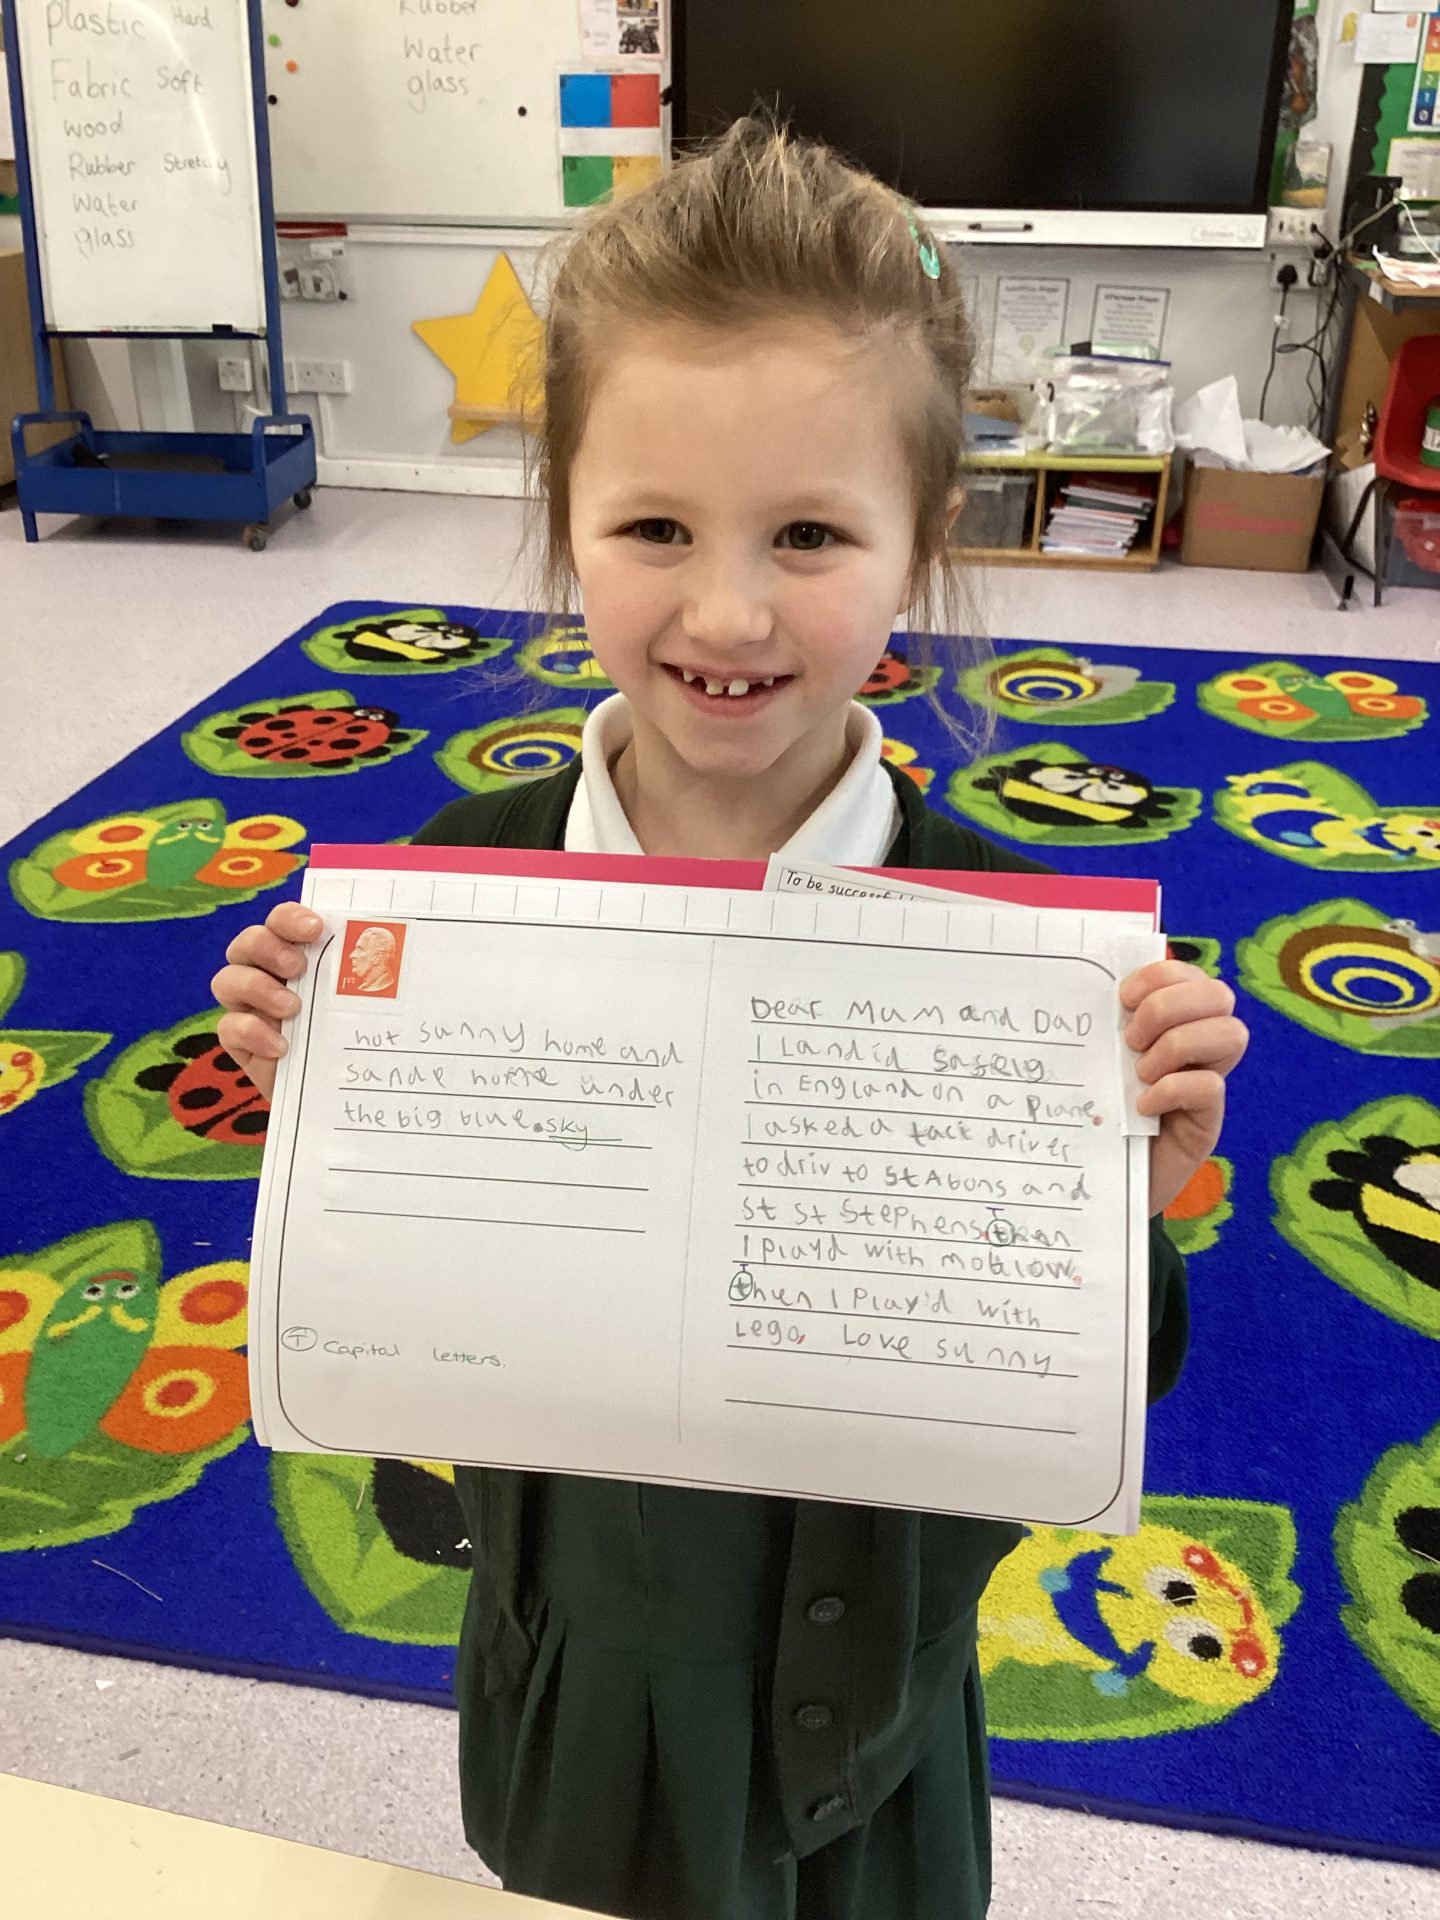 Plastic Hard
Fabric Soft
wood
Rubber Stretchy
Water
glass
Rubber
Water
glass
To be successful
1ST
hot sunny home and
sande home under
the big blue.sky
T Capital letters.
Dear Mum and Dad
I Landid safely
in England on a plane.
I asked a tacx driver
to driv to St Abons and
St St Stephens.
I playd with
T
then I Play'd with
Lego. Love sunny